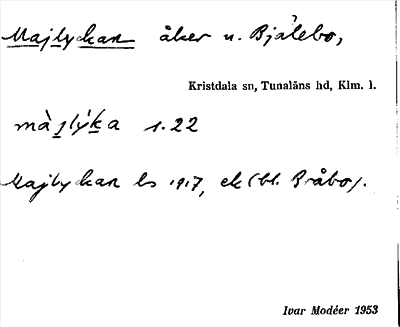 Majlyckan åker u. Bjälebo,
Kristdala sn, Tunaläns hd, Klm. l.
màjlýka 1.22
Majlyckan ls 1917, ek (bl. Bråbo).
Ivar Modéer 1953